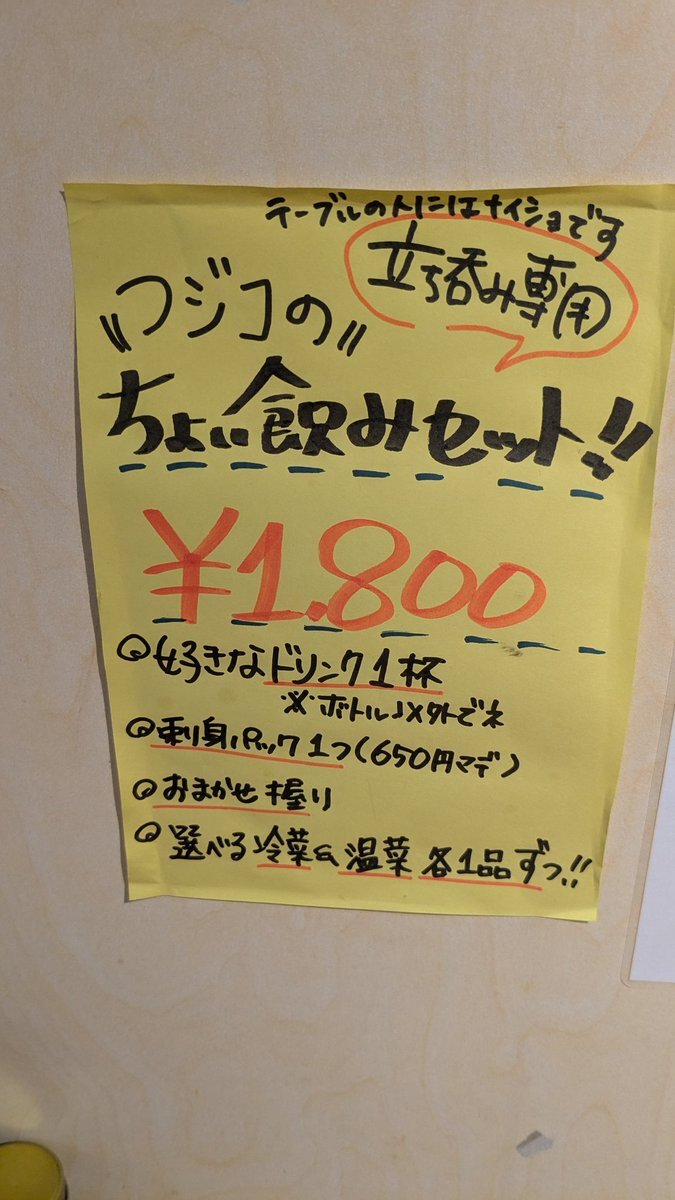 テーブルの人にはナイショです
立ち呑み専用
"フジコの"
ちょい飲みセット!!
¥1.800
◎好きなドリンク1杯
※ボトル以外でネ
◎刺身パック1つ(650円マデ)
◎おまかせ握り
◎選べる冷菜&温菜 各1品ずつ!!